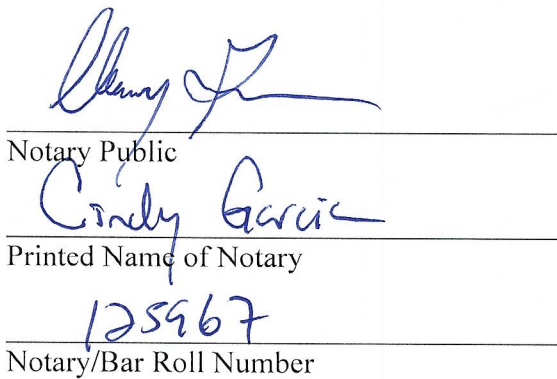 Notary Public
Cindy Garcia
Printed Name of Notary
125967
Notary/Bar Roll Number